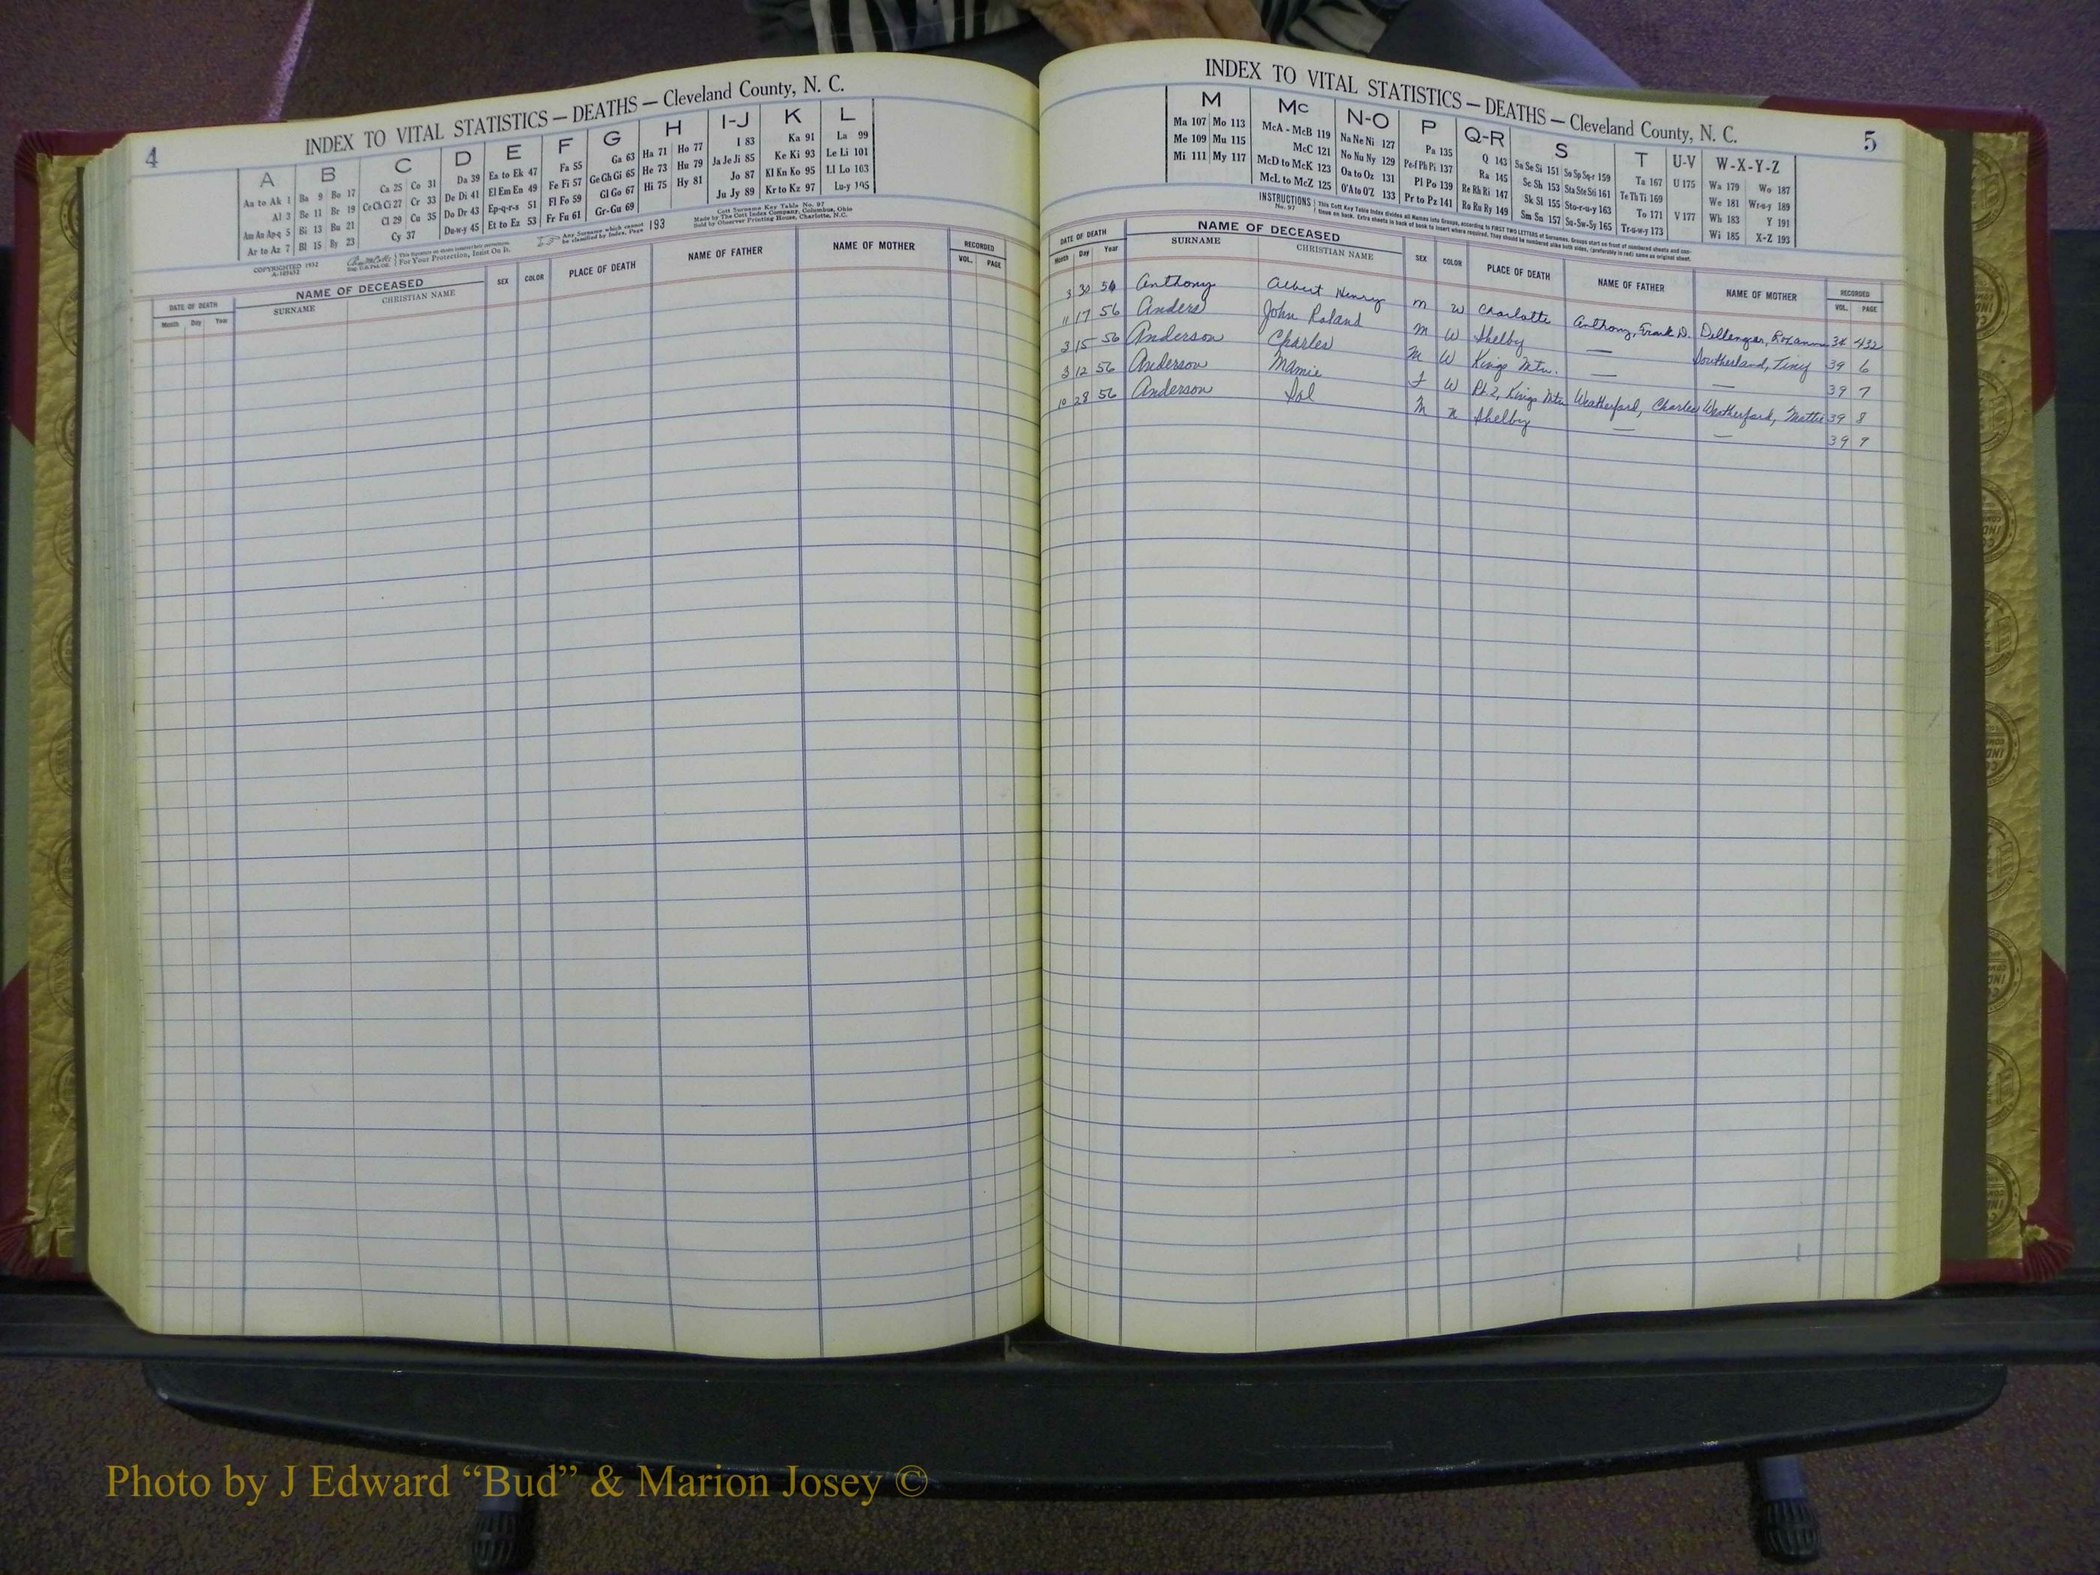 4
INDEX TO VITAL STATISTICS — DEATHS — Cleveland County, N. C.
A B C D E F G H I-J K L
Aa to Ak 1 Ba 9 Bo 17 Ca 25 Co 31 Da 39 Ea to Ek 47 Fa 55 Ga 63 Ha 71 Ho 77 I 83 Ka 91 La 99
Al 3 Be 11 Br 19 Ce Ch Ci 27 Cr 33 De Di 41 El Em En 49 Fe Fi 57 Ge Gh Gi 65 He 73 Hu 79 Ja Je Ji 85 Ke Ki 93 Le Li 101
Am An Ap-q 5 Bi 13 Bu 21 Cl 29 Cu 35 Do Dr 43 Ep-q-r-s 51 Fl Fo 59 Gl Go 67 Hi 75 Hy 81 Jo 87 Kl Kn Ko 95 Ll Lo 103
Ar to Az 7 Bl 15 By 23 Cy 37 Du-w-y 45 Et to Ez 53 Fr Fu 61 Gr-Gu 69 Ju Jy 89 Kr to Kz 97 Lu-y 105
COPYRIGHTED 1932
For Your Protection, Insist On It.
Any Surname which cannot be classified by Index, Page 193
Cott Surname Key Table No. 97
Made by The Cott Index Company, Columbus, Ohio
Sold by Observer Printing House, Charlotte, N.C.
DATE OF DEATH NAME OF DECEASED SEX COLOR PLACE OF DEATH NAME OF FATHER NAME OF MOTHER RECORDED
Month Day Year SURNAME CHRISTIAN NAME VOL. PAGE
INDEX TO VITAL STATISTICS — DEATHS — Cleveland County, N. C.
5
M Mc N-O P Q-R S T U-V W-X-Y-Z
Ma 107 Mo 113 McA - McB 119 Na Ne Ni 127 Pa 135 Q 143 Sa Se Si 151 So Sp Sq-r 159 Ta 167 U 175 Wa 179 Wo 187
Me 109 Mu 115 McC 121 No Nu Ny 129 Pe-f Ph Pi 137 Ra 145 Sc Sh 153 Sta Ste Sti 161 Te Th Ti 169 We 181 Wr-u-y 189
Mi 111 My 117 McD to McK 123 Oa to Oz 131 Pl Po 139 Re Rh Ri 147 Sk Sl 155 Sto-r-u-y 163 To 171 V 177 Wh 183 Y 191
McL to McZ 125 O'A to O'Z 133 Pr to Pz 141 Ro Ru Ry 149 Sm Sn 157 Su-Sw-Sy 165 Tr-u-w-y 173 Wi 185 X-Z 193
INSTRUCTIONS No. 97 This Cott Key Table Index divides all Names into Groups, according to FIRST TWO LETTERS of Surnames.
DATE OF DEATH NAME OF DECEASED SEX COLOR PLACE OF DEATH NAME OF FATHER NAME OF MOTHER RECORDED
Month Day Year SURNAME CHRISTIAN NAME VOL. PAGE
3 30 54 Anthony Albert Henry M W Charlotte Anthony, Frank D. 34 432
11 17 56 Anders John Roland M W Shelby — Southerland, Tiny 39 6
3 15 56 Anderson Charles M W Kings Mtn. — — 39 7
3 12 56 Anderson Mamie F W Rt. 2, Kings Mtn Weatherford, Charles Weatherford, Mattie 39 8
10 28 56 Anderson Sol M n Shelby — — 39 9
Photo by J Edward “Bud” & Marion Josey ©